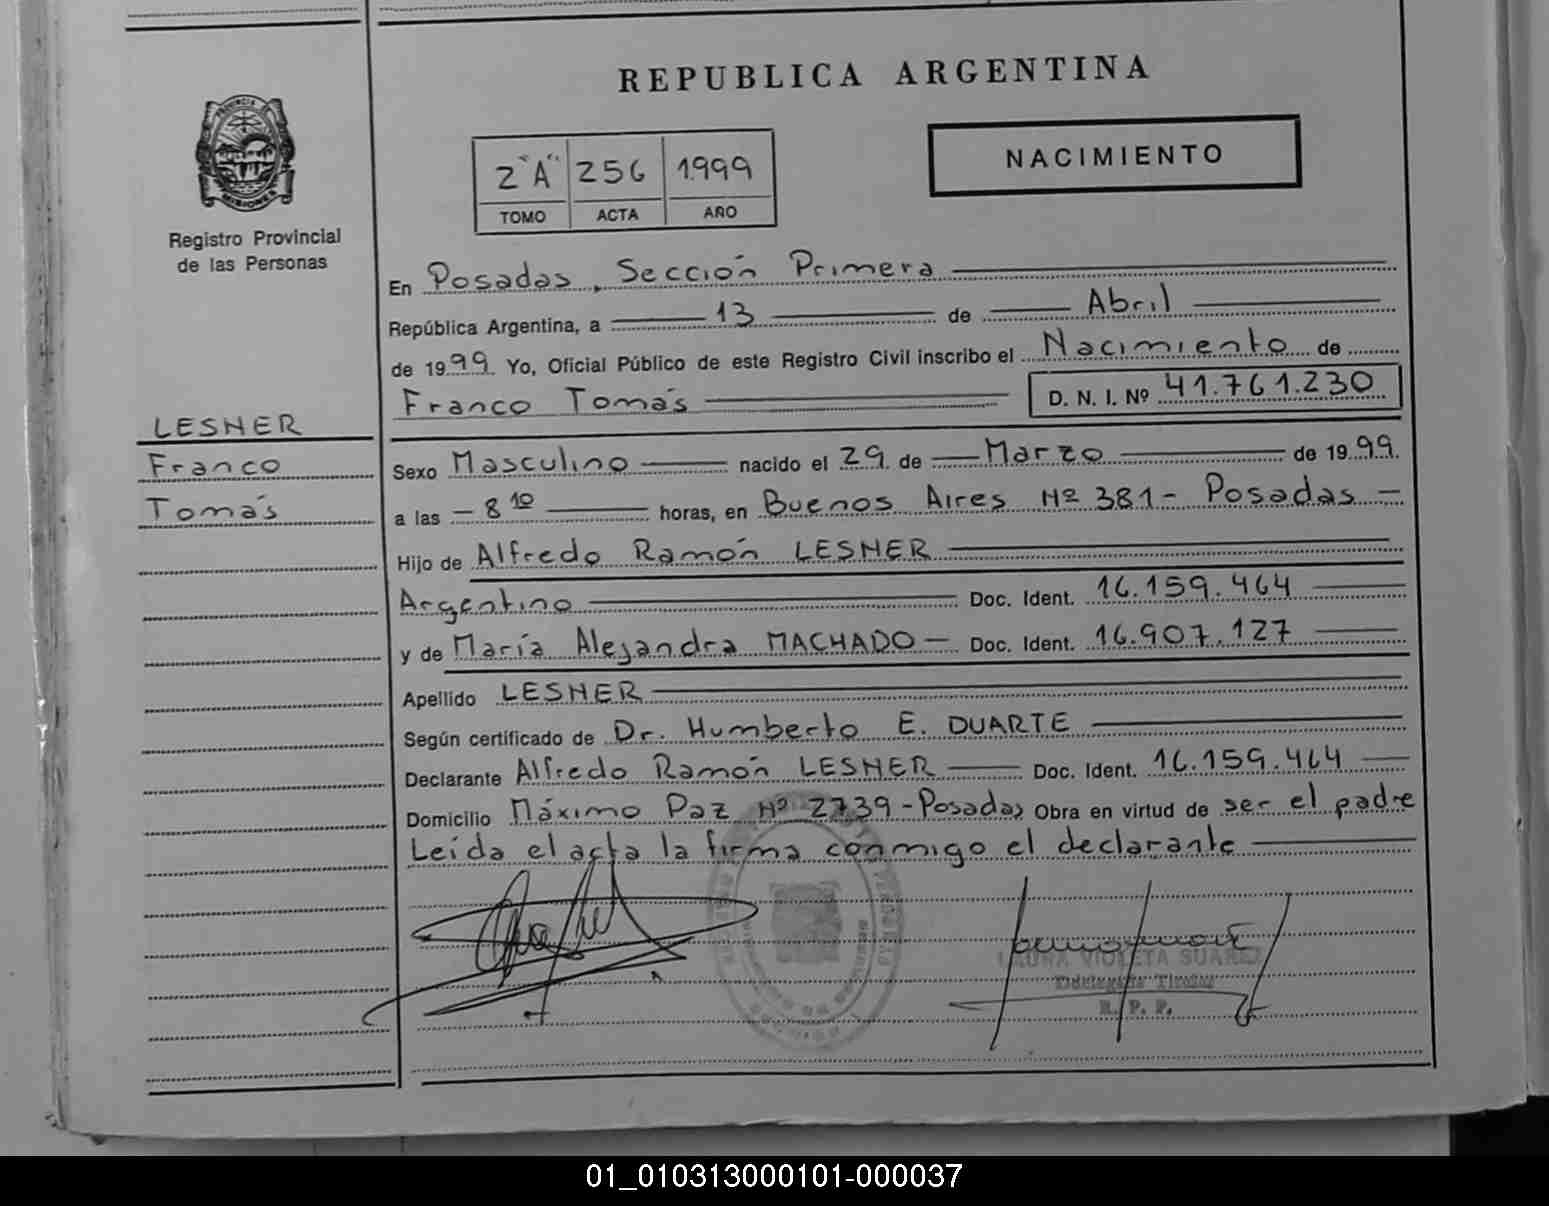 REPUBLICA ARGENTINA
2 "A" 256 1.999
TOMO ACTA AÑO
NACIMIENTO
Registro Provincial
de las Personas
En Posadas, Sección Primera
República Argentina, a 13 de Abril
de 1999 Yo, Oficial Público de este Registro Civil inscribo el Nacimiento de
Franco Tomás D. N. I. Nº 41.761.230
LESNER
Franco
Tomás
Sexo Masculino nacido el 29 de Marzo de 1999.
a las - 8 10 horas, en Buenos Aires Nº 381 - Posadas -
Hijo de Alfredo Ramón LESNER
Argentino Doc. Ident. 16.159.464
y de María Alejandra MACHADO - Doc. Ident. 16.907.127
Apellido LESNER
Según certificado de Dr. Humberto E. DUARTE
Declarante Alfredo Ramón LESNER Doc. Ident. 16.159.464
Domicilio Máximo Paz Nº 2739 - Posadas Obra en virtud de ser el padre
Leída el acta la firma conmigo el declarante
LAURA VIOLETA SUAREZ
Titular
R. P. P.
01_010313000101-000037